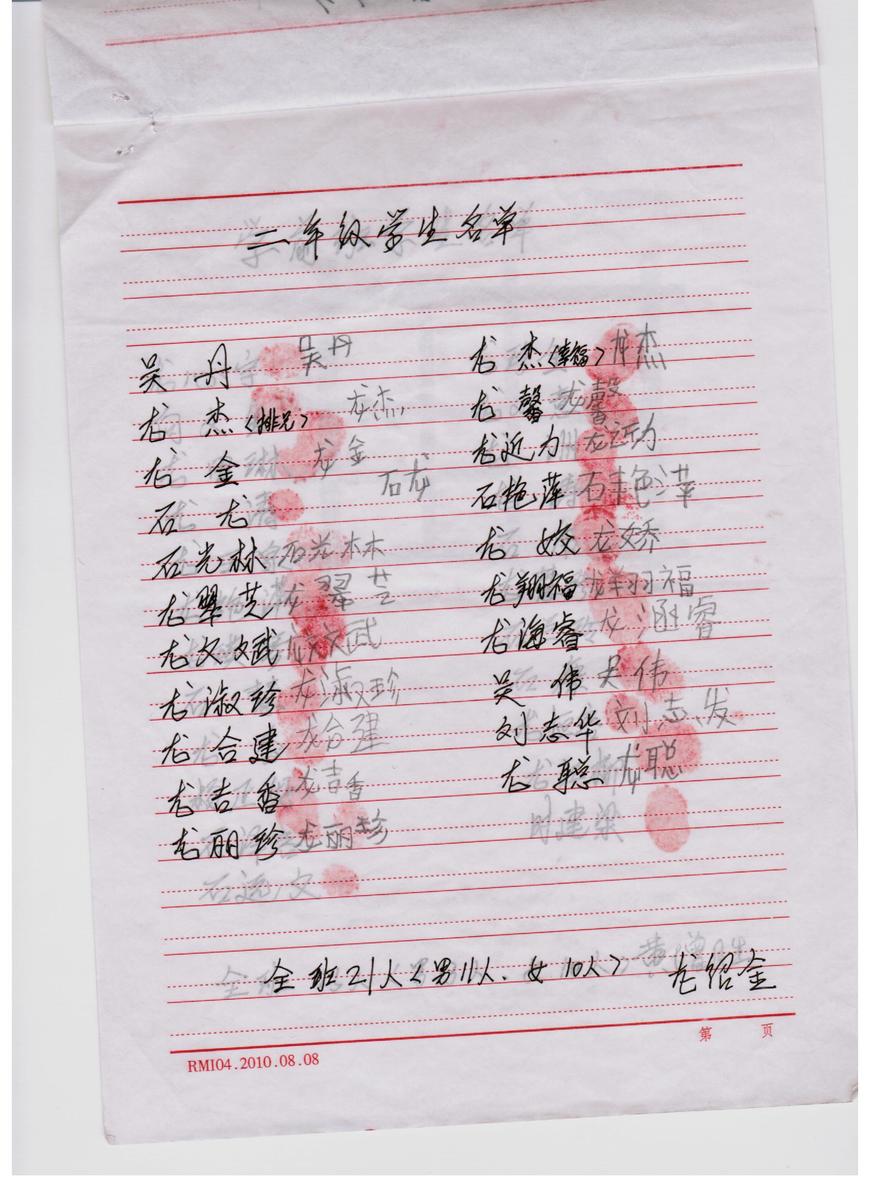 二年级学生名单
吴丹 吴丹
龙杰(排兄) 龙杰
龙金 龙金
石龙 石龙
石光林 石光林
龙翠芝 龙翠芝
龙文斌 龙文武
龙淑珍 龙淑珍
龙合建 龙合建
龙吉香 龙吉香
龙丽珍 龙丽珍
龙杰(幸福) 龙杰
龙馨 龙馨
龙近力 龙近力
石艳萍 石艳萍
龙姣 龙娇
龙翔福 龙翔福
龙海睿 龙涵睿
吴伟 吴伟
刘志华 刘志发
龙聪 龙聪
全班21人(男11人.女10人) 龙绍金
第 页
RMI04.2010.08.08